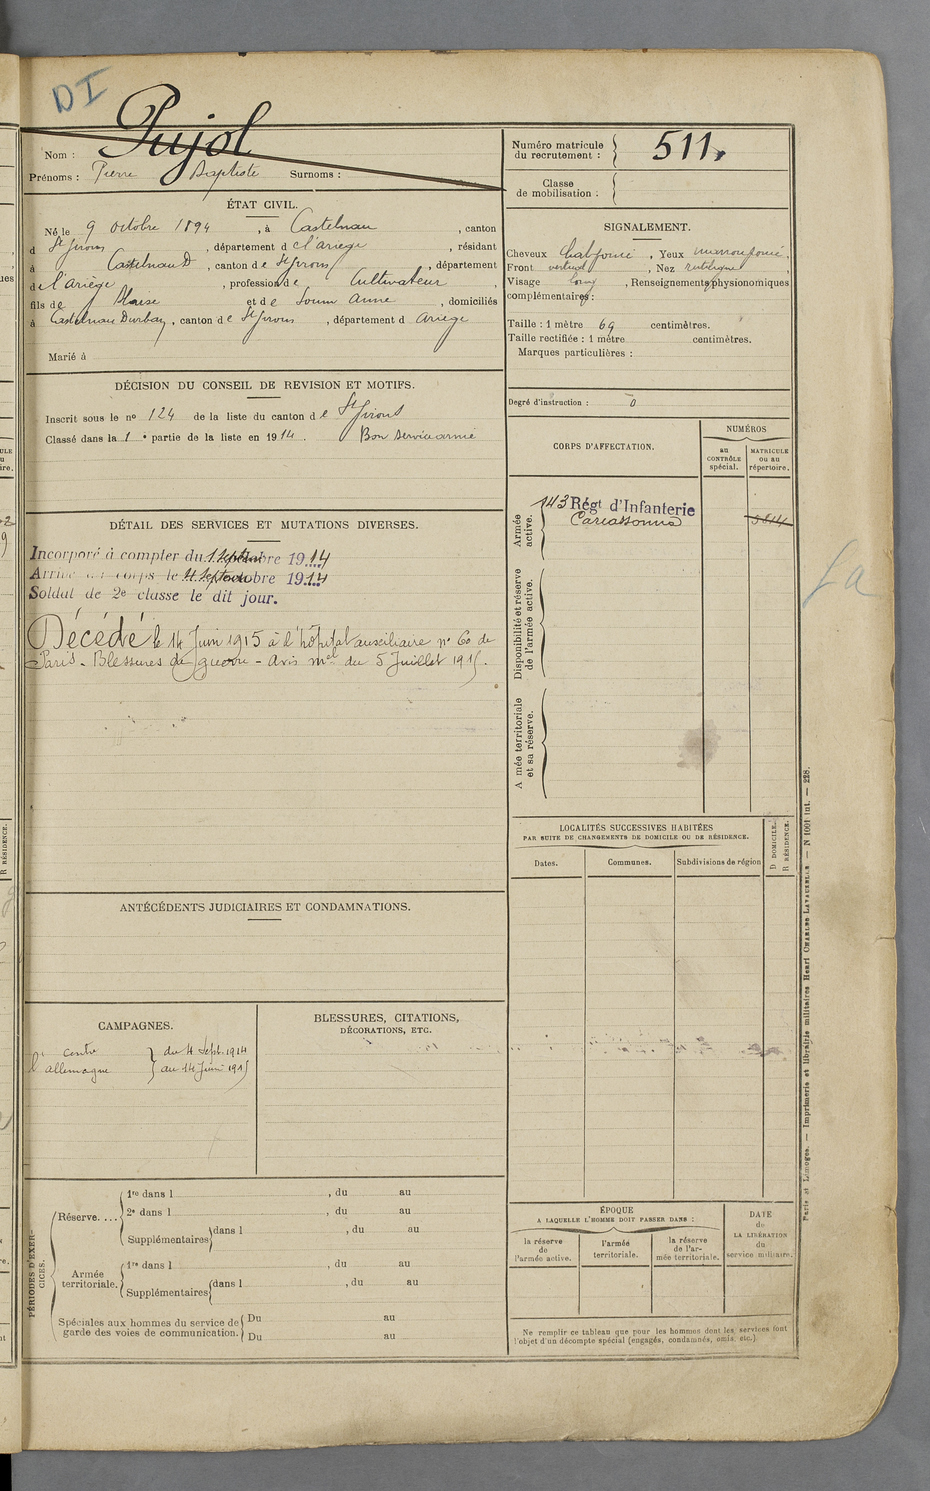 DI
Pujol
Nom :
Prénoms : Pierre Baptiste Surnoms :
Numéro matricule du recrutement : 511
Classe de mobilisation :
ÉTAT CIVIL.
Né le 9 octobre 1894, à Castelnau, canton
d St Girons, département de l'ariège, résidant
à Castelnau D, canton de St Girons, département
de l'ariège, profession de Cultivateur,
fils de Blaise et de Soum Anne, domiciliés
à Castelnau Durban, canton de St Girons, département d Ariège
Marié à
SIGNALEMENT.
Cheveux chat foncé, Yeux marron foncé.
Front vertical, Nez rectiligne
Visage long, Renseignements physionomiques
complémentaires :
Taille : 1 mètre 69 centimètres.
Taille rectifiée : 1 mètre centimètres.
Marques particulières :
Degré d'instruction : 0
DÉCISION DU CONSEIL DE REVISION ET MOTIFS.
Inscrit sous le no 124 de la liste du canton de St Girons
Classé dans la 1e partie de la liste en 1914. Bon service armé
DÉTAIL DES SERVICES ET MUTATIONS DIVERSES.
Incorporé à compter du 1 Septembre 1914
Arrivé au corps le 4 Septembre 1914
Soldat de 2e classe le dit jour.
Décédé le 14 Juin 1915 à l'hôpital auxiliaire no 60 de
Paris - Blessures de guerre - avis mel du 5 Juillet 1915.
CORPS D'AFFECTATION.
NUMÉROS
au CONTRÔLE spécial.
MATRICULE ou au répertoire.
Armée active.
143 Régt d'Infanterie
Carcassonne
Disponibilité et réserve de l'armée active.
A mée territoriale et sa réserve.
LOCALITÉS SUCCESSIVES HABITÉES
PAR SUITE DE CHANGEMENTS DE DOMICILE OU DE RÉSIDENCE.
Dates.
Communes.
Subdivisions de région
D DOMICILE.
R RÉSIDENCE.
ANTÉCÉDENTS JUDICIAIRES ET CONDAMNATIONS.
CAMPAGNES.
contre l'allemagne
du 4 Sept. 1914
au 14 Juin 1915
BLESSURES, CITATIONS,
DÉCORATIONS, ETC.
PÉRIODES D'EXERCICES.
Réserve....
1re dans l , du au
2e dans l , du au
Supplémentaires dans l , du au
Armée territoriale.
1re dans l , du au
Supplémentaires dans l , du au
Spéciales aux hommes du service de garde des voies de communication.
Du au
Du au
ÉPOQUE
A LAQUELLE L'HOMME DOIT PASSER DANS :
la réserve de l'armée active.
l'armée territoriale.
la réserve de l'armée territoriale.
DATE de LA LIBÉRATION du service militaire.
Ne remplir ce tableau que pour les hommes dont les services font
l'objet d'un décompte spécial (engagés, condamnés, omis, etc.)
Paris et Limoges. — Imprimerie et librairie militaires Henri CHARLES LAVAUZELLE. — N 1001 int. — 228.